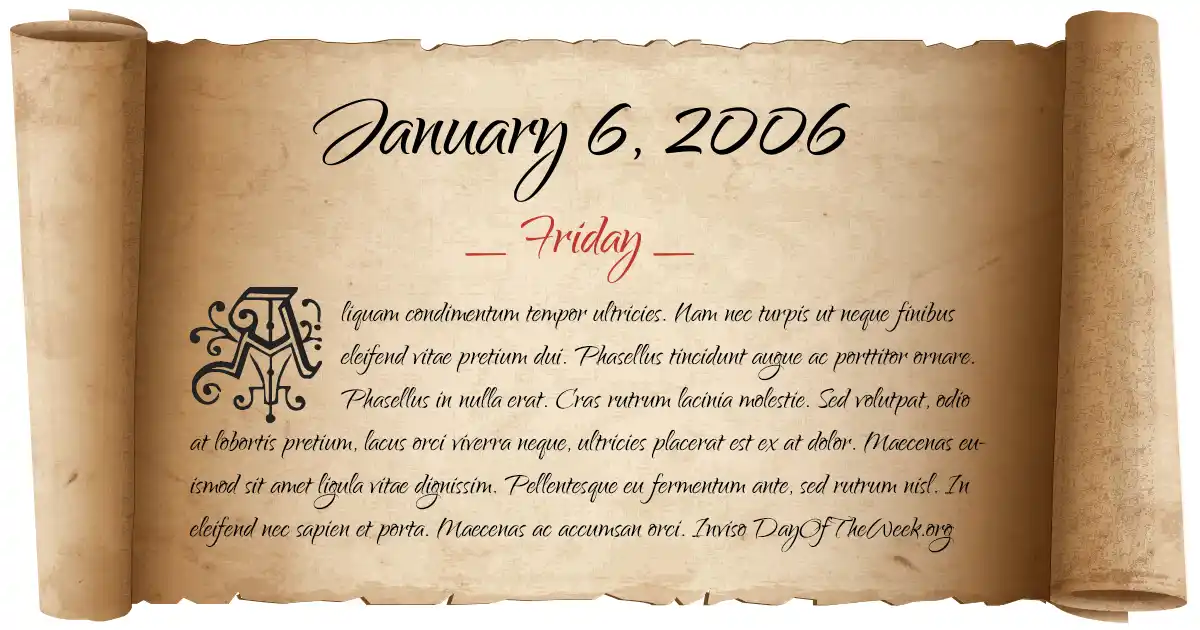 January 6, 2006
_ Friday _
Aliquam condimentum tempor ultricies. Nam nec turpis ut neque finibus
eleifend vitae pretium dui. Phasellus tincidunt augue ac porttitor ornare.
Phasellus in nulla erat. Cras rutrum lacinia molestie. Sed volutpat, odio
at lobortis pretium, lacus orci viverra neque, ultricies placerat est ex at dolor. Maecenas eu-
ismod sit amet ligula vitae dignissim. Pellentesque eu fermentum ante, sed rutrum nisl. In
eleifend nec sapien et porta. Maecenas ac accumsan orci. Inviso DayOfTheWeek.org